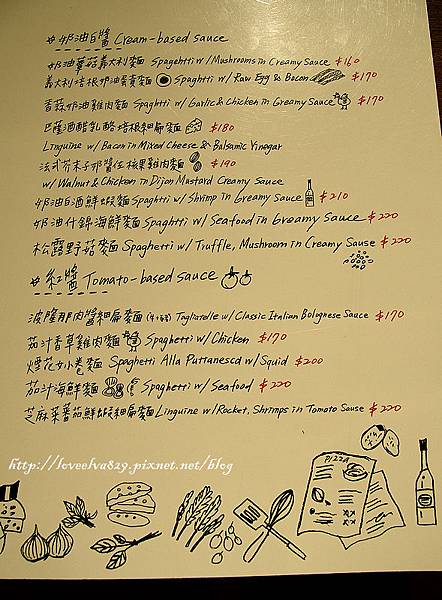 # 奶油白醬 Cream-based sauce
奶油蘑菇義大利麵 Spagehtti w/ Mushrooms in Creamy Sauce $160
義大利培根奶油蛋黃麵 Spaghtti w/ Raw Egg & Bacon $170
香蒜奶油雞肉麵 Spaghtti w/ Garlic & Chicken in Greamy Sauce $170
巴薩酒醋乳酪培根細扁麵 $180
Linguine w/ Bacon in Mixed Cheese & Balsamic Vinegar
法式芥末子奶醬佐核果雞肉麵 $190
w/ Walnut & Chicken in Dijon Mustard Creamy Sauce
奶油白酒鮮蝦麵 Spaghtti w/ Shrimp in Greamy Sauce $210
奶油什錦海鮮麵 Spaghtti w/ Seafood in Greamy Sauce $220
松露野菇麵 Spaghetti w/ Truffle, Mushroom in Creamy Sause $220
# 紅醬 Tomato-based sauce
波隆那肉醬細扁麵 Tagliatelle w/ Classic Italian Bolognese Sauce $170
茄汁香草雞肉麵 Spaghetti w/ Chicken $170
煙花女小卷麵 Spaghetti Alla Puttanescd w/ Squid $200
茄汁海鮮麵 Spaghetti w/ Seafood $220
芝麻葉蕃茄鮮蝦細扁麵 Linguine w/ Rocket, Shrimps in Tomato Sause $220
http://loveelva829.pixnet.net/blog
PIZZA